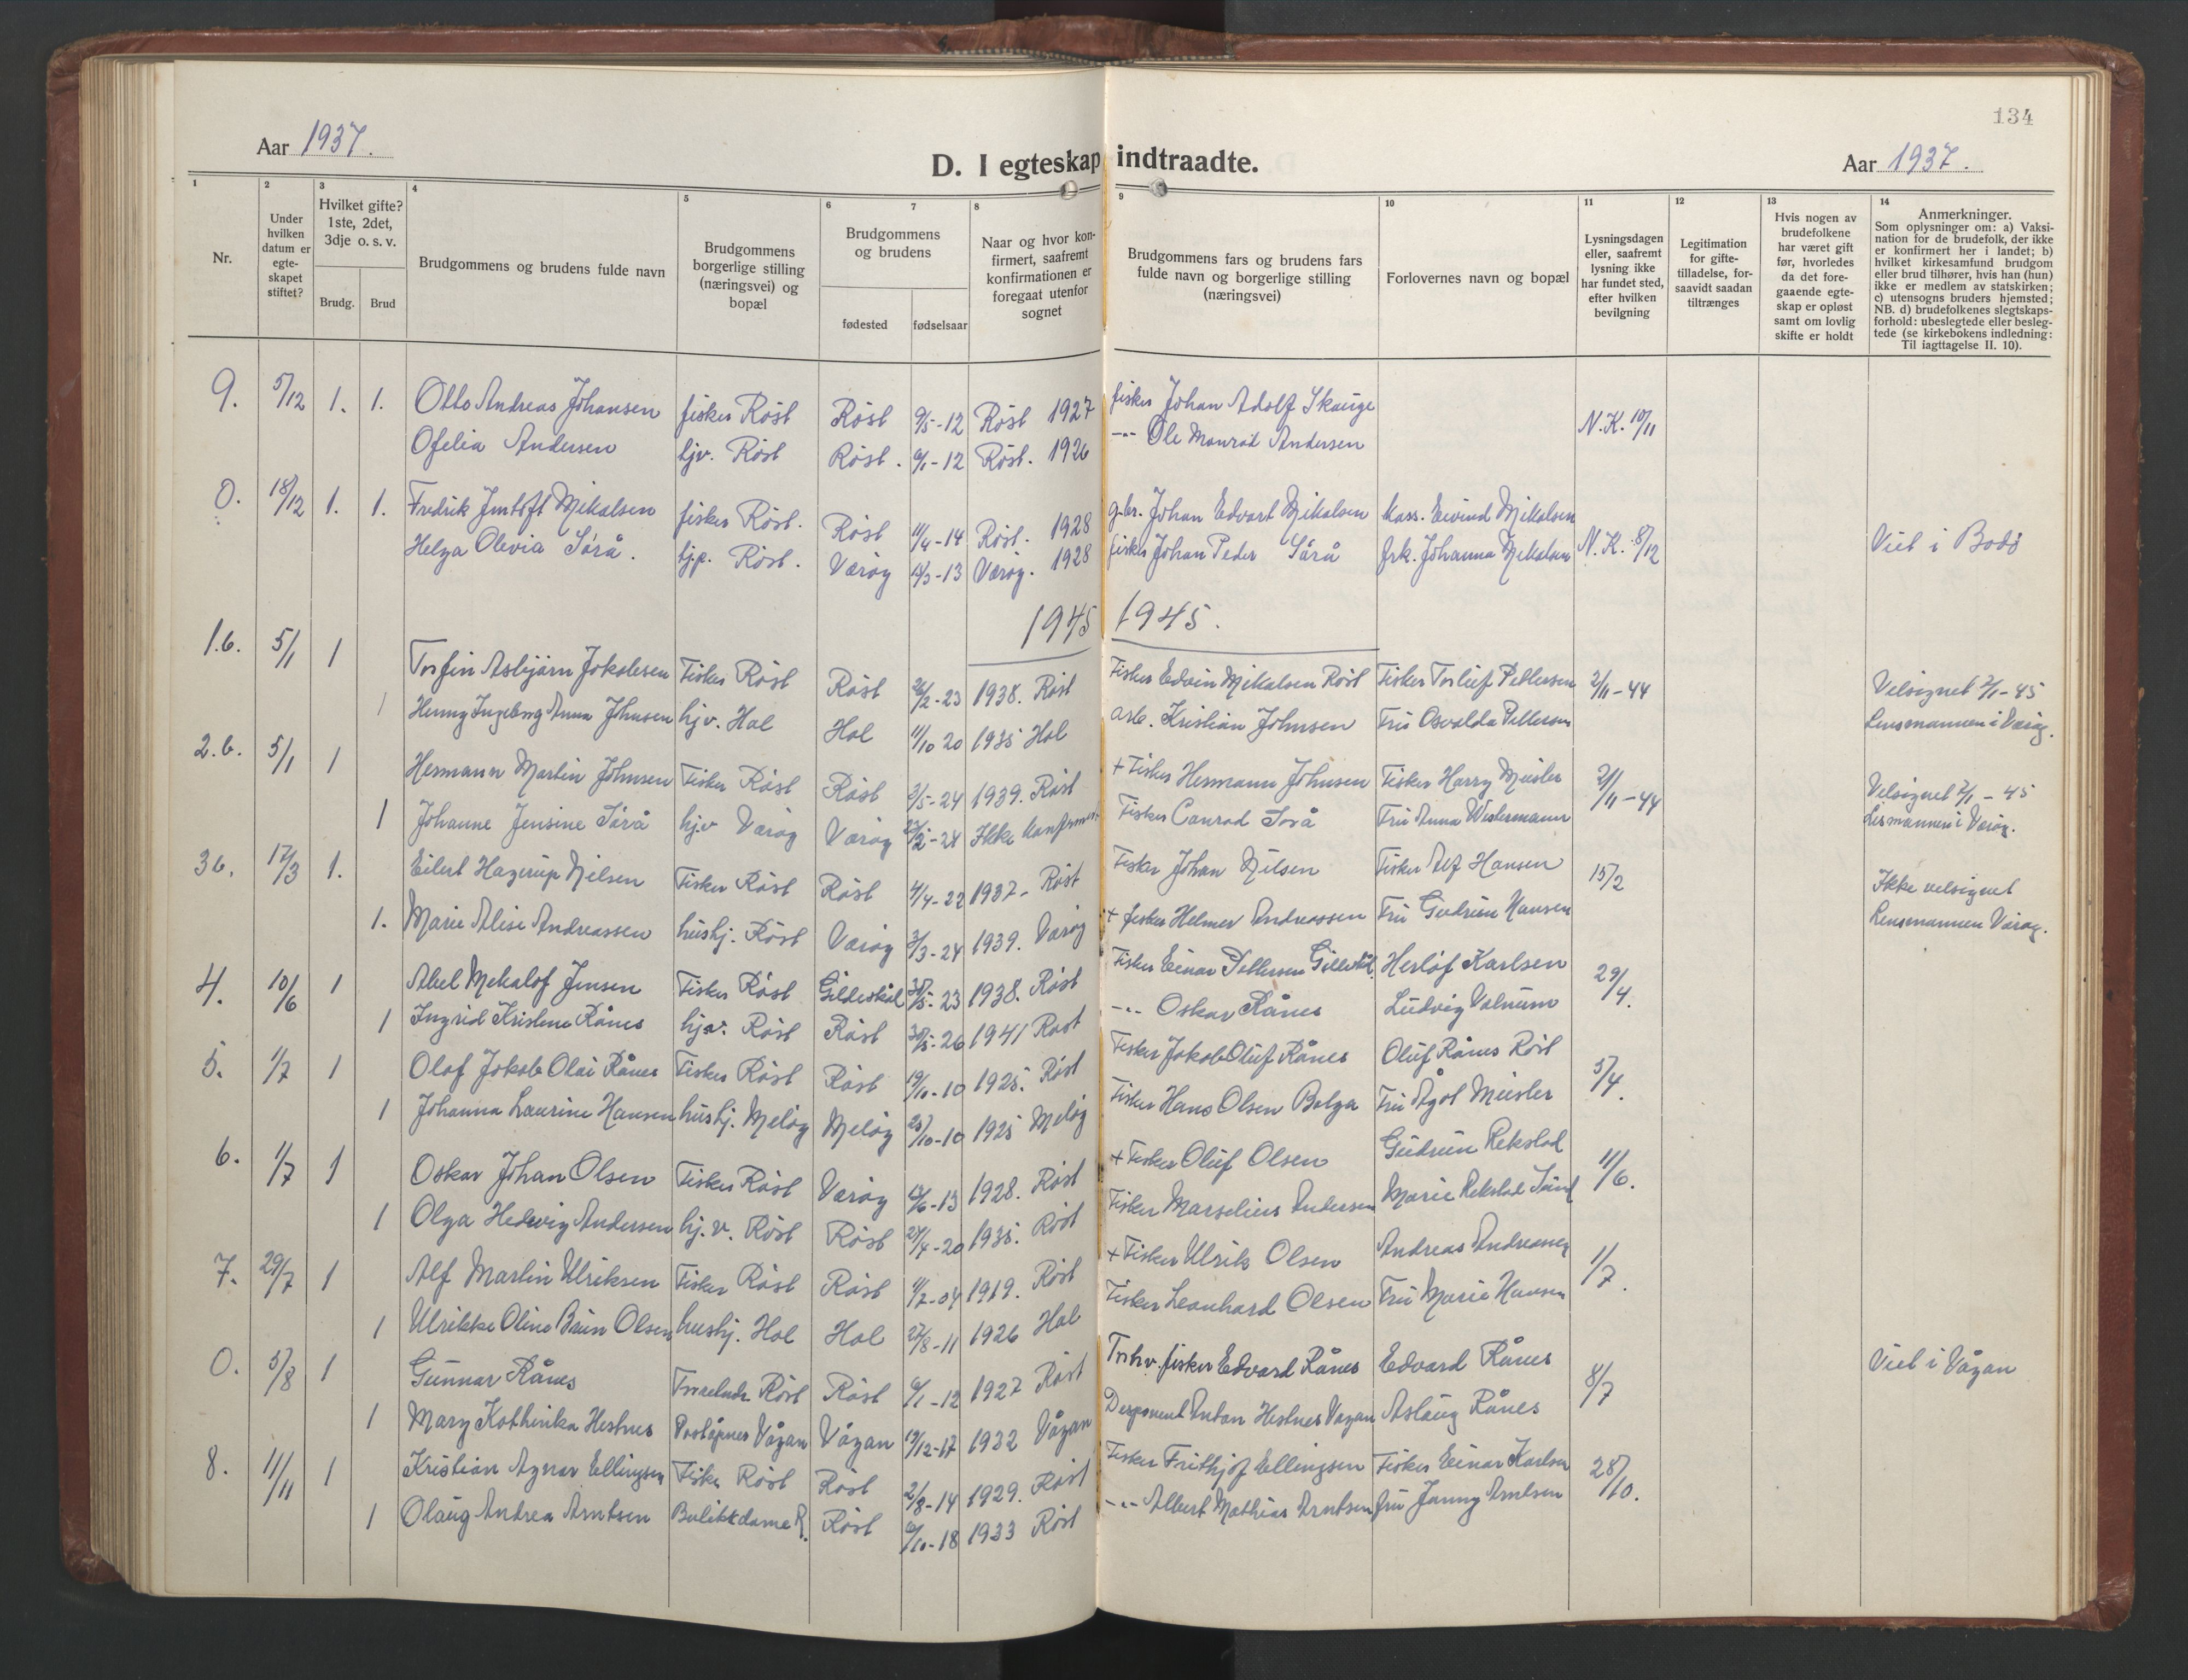 134
Aar 1937.
D. I egteskap indtraadte.
Aar 1937.
1 2 3 4 5 6 7 8 9 10 11 12 13 14
Nr.
Under hvilken datum er egte-skapet stiftet?
Hvilket gifte? 1ste, 2det, 3dje o. s. v.
Brudg. Brud
Brudgommens og brudens fulde navn
Brudgommens borgerlige stilling (næringsvei) og bopæl
Brudgommens og brudens
fødested fødselsaar
Naar og hvor kon-firmert, saafremt konfirmationen er foregaat utenfor sognet
Brudgommens fars og brudens fars fulde navn og borgerlige stilling (næringsvei)
Forlovernes navn og bopæl
Lysningsdagen eller, saafremt lysning ikke har fundet sted, efter hvilken bevilgning
Legitimation for gifte-tilladelse, for-saavidt saadan tiltrænges
Hvis nogen av brudefolkene har været gift før, hvorledes da det fore-gaaende egte-skap er opløst samt om lovlig skifte er holdt
Anmerkninger.
Som oplysninger om: a) Vaksi-nation for de brudefolk, der ikke er konfirmert her i landet; b) hvilket kirkesamfund brudgom eller brud tilhører, hvis han (hun) ikke er medlem av statskirken; c) utensogns bruders hjemsted; NB. d) brudefolkenes slegtskaps-forhold: ubeslegtede eller besleg-tede (se kirkebokens indledning: Til iagttagelse II. 10).
9. 5/12 1. 1. Otto Andreas Johansen fisker Röst Röst 9/5-12 Röst 1927 fisker Johan Adolf Skauge N.K. 10/11
Ofelia Andersen hjv. Röst Röst. 6/1-12 Röst. 1926 -"- Ole Monrad Andersen
0. 18/12 1. 1. Fredrik Jentoft Mikalsen fisker Röst. Röst 11/4-14 Röst. 1928 gbr. Johan Edvart Mikalsen kass. Eivind Mikalsen N.K. 8/12 Viet i Bodö
Helga Olevia Sörå. hjp. Röst. Værøy -13 Værøy. 1928 fisker Johan Peder Sörå frk. Johanna Mikalsen
1945 1945.
1.b. 5/1 1 Torfin Asbjørn Jokalesen Fisker Röst Röst 26/2-23 1938. Röst Fisker Edvin Mikalsen Röst Fisker Torleif Pettersen 2/11-44 Velsignet 7/1-45
1 Henny Ingeborg Anna Johnsen hjv. Hol Hol 11/10 20 1935 Hol arb. Kristian Johnsen Fru Osvalda Pettersen Lensmannen i Værøy.
2.b. 5/1 1 Hermann Martin Johnsen Fisker Röst Röst 3/5-24 1939. Röst + Fisker Hermann Johnsen Fisker Harry Meisler 2/11-44 Velsignet 7/1-45
1 Johanne Jensine Sörå hjv Værøy Værøy -24 Ikke konfirmert Fisker Conrad Sørå Fru Anna Westermann Lensmannen i Værøy.
3b. 17/3 1. Eilert Hagerup Nilsen Fisker Röst Röst 4/4-22 1937- Röst Fisker Johan Nilsen Fisker Alf Hansen 15/2 Ikke velsignet
1. Marie Alise Andreassen hushj. Röst Værøy 3/3-24 1939. Værøy + fisker Helmer Andreassen Fru Gudrun Hansen Lensmannen Værøy.
4. 10/6 1 Abel Mekalof Jensen Fisker Röst Gildeskål 30/5-23 1938. Röst Fisker Einar Pettersen Gildeskål. Herlof Karlsen 29/4.
1 Ingrid Kristine Rånes hjv. Röst Röst 30/5-26 1941 Röst -"- Oskar Rånes Ludvig Valnum
5. 1/7 1 Olaf Jokob Olai Rånes Fisker Röst Röst 19/10-10 1925. Röst Fisker Jokob Oluf Rånes Oluf Rånes Röst 5/4.
1 Johanna Laurine Hansen hushj. Meløy Meløy 25/10-10 1925 Meløy Fisker Hans Olsen Bolga Fru Ågot Meisler
6. 1/7 1 Oskar Johan Olsen Fisker Röst Værøy -13 1928. Röst + Fisker Oluf Olsen Gudrun Rekstad 11/6.
1 Olga Hedevig Andersen hj.v. Röst Röst 27/4-20 1935. Röst Fisker Marselius Andersen Marie Rekstad
7. 29/7 1 Alf Martin Ulriksen Fisker Röst Röst -04 1919. Röst + Fisker Ulrik Olsen Andreas Andreassen 1/7.
1 Ulrikke Oline Brun Olsen hushj. Hol Hol 27/8-11 1926 Hol Fisker Leonhard Olsen Fru Marie Hansen
0. 5/8 1 Gunnar Rånes Röst Röst 6/1-12 1927 Röst Fhv. fisker Edvard Rånes Edvard Rånes 8/7 Viet i Vågan
1 Mary Kathinka Hestnes Poståpner Vågan Vågan 19/12-17 1932 Vågan Disponent Anton Hestnes Vågan Aslaug Rånes
8. 11/11 1 Kristian Agnar Ellingsen Fisker Röst Röst 2/8-14 1929. Röst Fisker Frithjof Ellingsen Fisker Einar Karlsen 28/10.
1 Olaug Andrea Arntsen Butikkdame R. Röst -18 1933 Röst -"- Albert Mathias Arntsen fru Jenny Arntsen